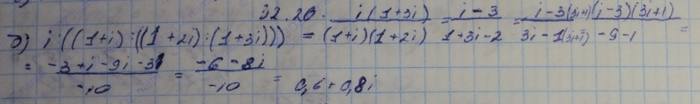 32.20. i(1+3i) / (1+i)(1+2i) = i-3 / 1+3i-2 = i-3(3i+1) / 3i-1(3i+1) = (i-3)(3i+1) / -9-1 =
д) i:((1+i):((1+2i):(1+3i))) =
= -3+i-9i-3 / -10 = -6-8i / -10 = 0,6+0,8i